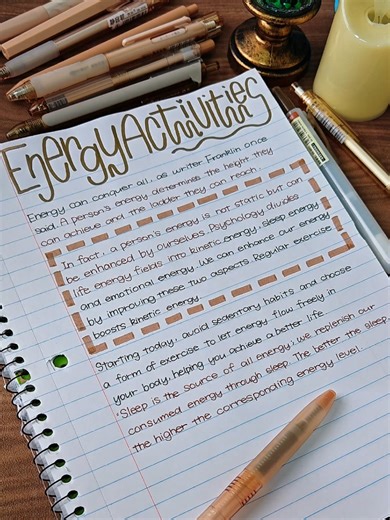 Energy Activities
Energy can conquer all, as writer Franklin once
said. A person's energy determines the height they
can achieve and the ladder they can reach.
In fact, a person's energy is not static but can
be enhanced by ourselves. Psychology divides
life energy fields into kinetic energy, sleep energy
and emotional energy. We can enhance our energy
by improving these two aspects. Regular exercise
boosts kinetic energy.
Starting today, avoid sedentary habits and choose
a form of exercise to let energy flow freely in
your body, helping you achieve a better life.
Sleep is the source of all energy; we replenish our
consumed energy through sleep. The better the sleep,
the higher the corresponding energy level.